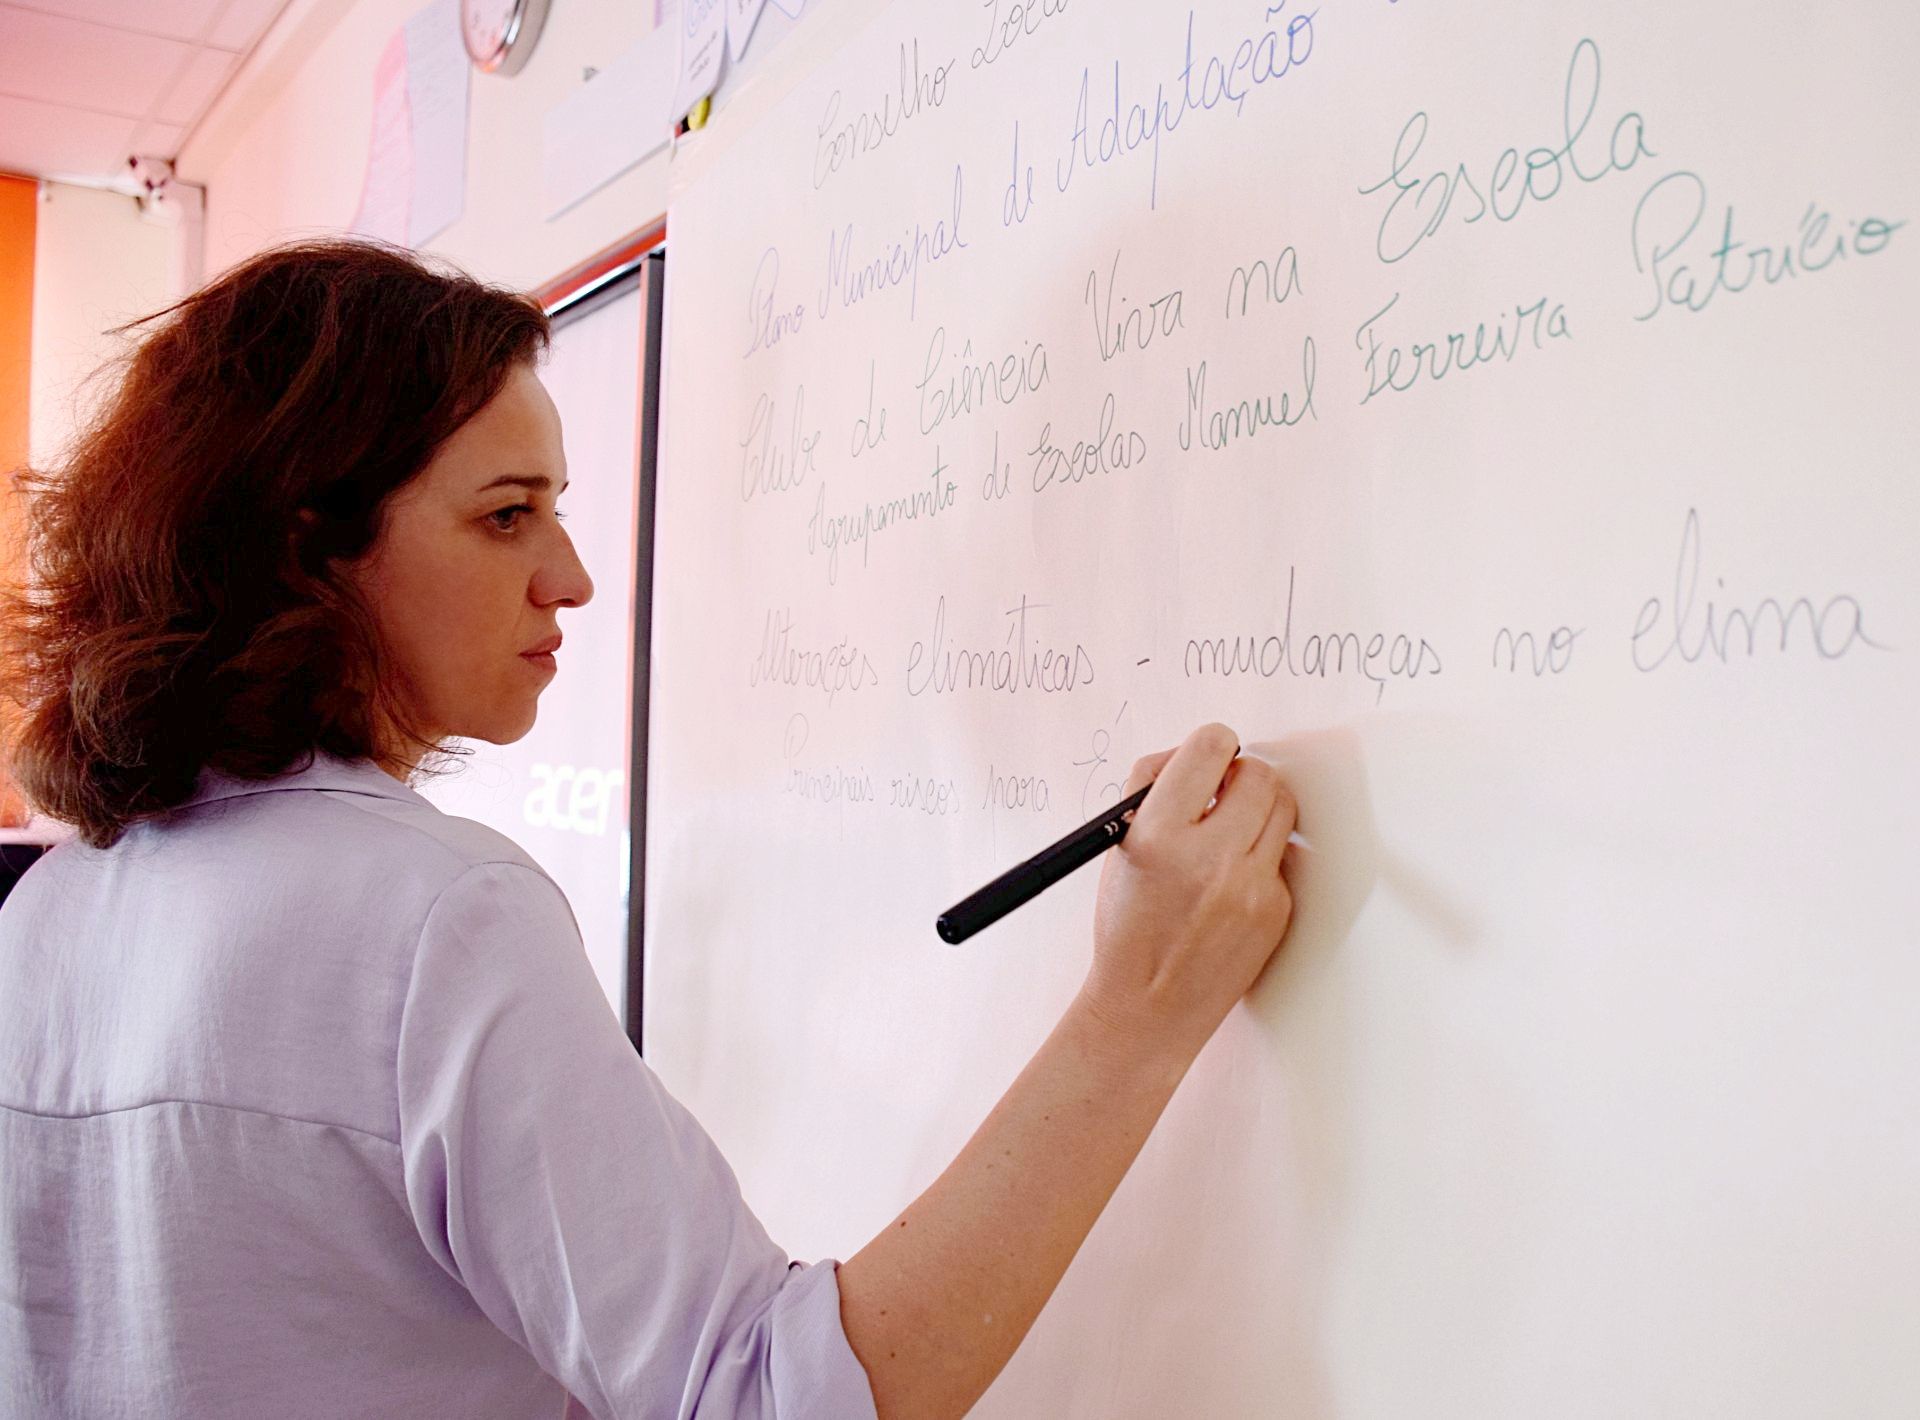 Conselho
Plano Municipal de Adaptação
Clube de Ciência Viva na Escola
Agrupamento de Escolas Manuel Ferreira Patrício
Alterações climáticas - mudanças no clima
Principais riscos para
acer